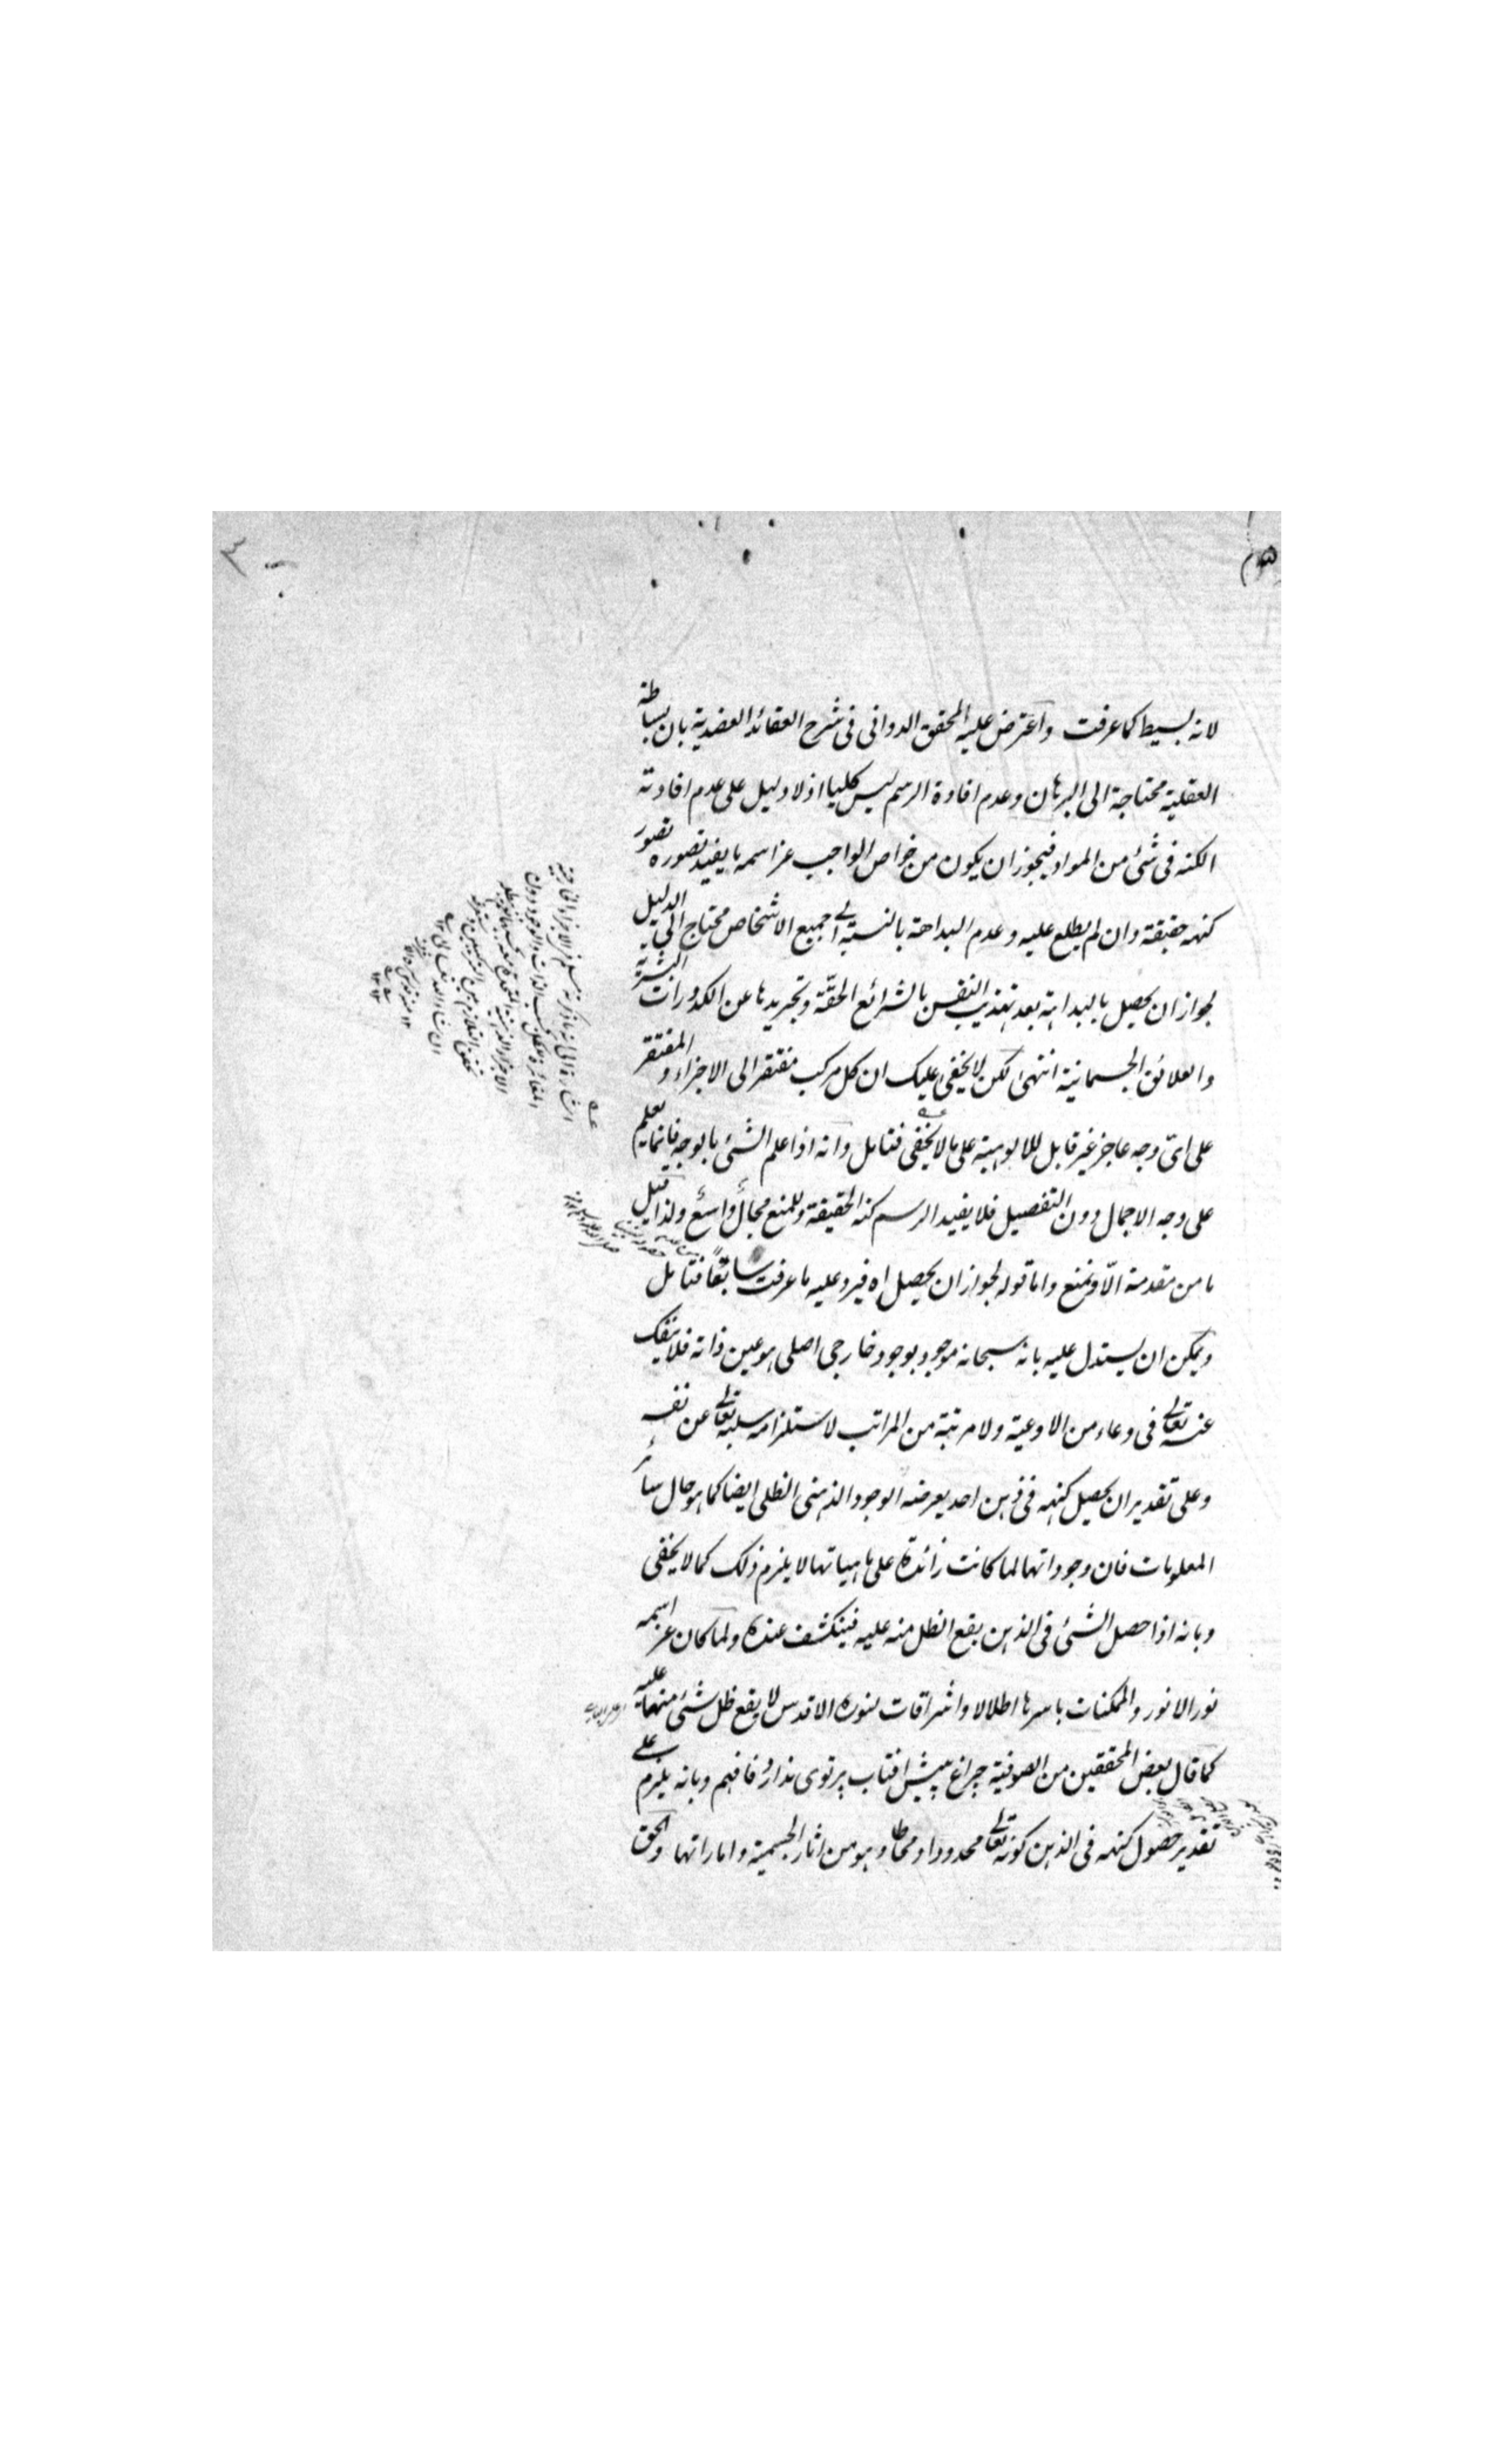 لانه بسيط كما عرفت واعترض عليه المحقق الدوانى فى شرح العقائد العضدية بان بساطة
العقلية محتاجة الى البرهان وعدم افادة الرسم ليس كليا اذ لا دليل على عدم افادته
الكنه فى شئ من المواد فيجوز ان يكون من خواص الواجب عز اسمه ما يفيد تصوره تصور
كنه حقيقته وان لم يطلع عليه وعدم البداهة بالنسبة الى جميع الاشخاص محتاج الى الدليل
لجواز ان يحصل بالبداهة بعد تهذيب النفس بالشرائع الحقّة وتجريدها عن الكدورات البشرية
والعلائق الجسمانية انتهى لكن لا يخفى عليك ان كل مركب مفتقر الى الاجزاء والمفتقر
على اىّ وجه عاجز غير قابل للالوهيته على ما لا يخفى فتامل وانه اذا علم الشئ بالوجه فانما يعلم
على وجه الاجمال دون التفصيل فلا يفيد الرسم كنه الحقيقة وللمنع مجال واسع ولذا قيل
ما من مقدمة الّا وتمنع واما قوله لجواز ان يحصل اه فيرد عليه ما عرفت سابقًا فتامل
ويمكن ان يستدل عليه بانه سبحانه موجود بوجود خارجى اصلى هو عين ذاته فلا ينفك
عنه تعالى فى وعاء من الاوعية ولا مرتبة من المراتب لاستلزامه سلبه تعالى عن نفسه
وعلى تقدير ان يحصل كنهه فى ذهن احد يعرضه الوجود الذهنى الظلى ايضا كما هو حال سائر
المعلومات فان وجوداتها لما كانت زائدة على ماهياتها لا يلزم ذلك كما لا يخفى
وبانه اذا حصل الشئ فى الذهن يقع الظل منه عليه فينكشف عنده ولما كان عز اسمه
نور الانور والممكنات باسرها اظلالا واشراقات لنوره الاقدس لا يقع ظل شئ منها عليه
كما قال بعض المحققين من الصوفية چراغ پيش افتاب پرتوى ندارد فافهم وبانه يلزم على
تقدير حصول كنهه فى الذهن كونه تعالى محدودا ومحاطا وهو من اثار الجسمية واماراتها والحق